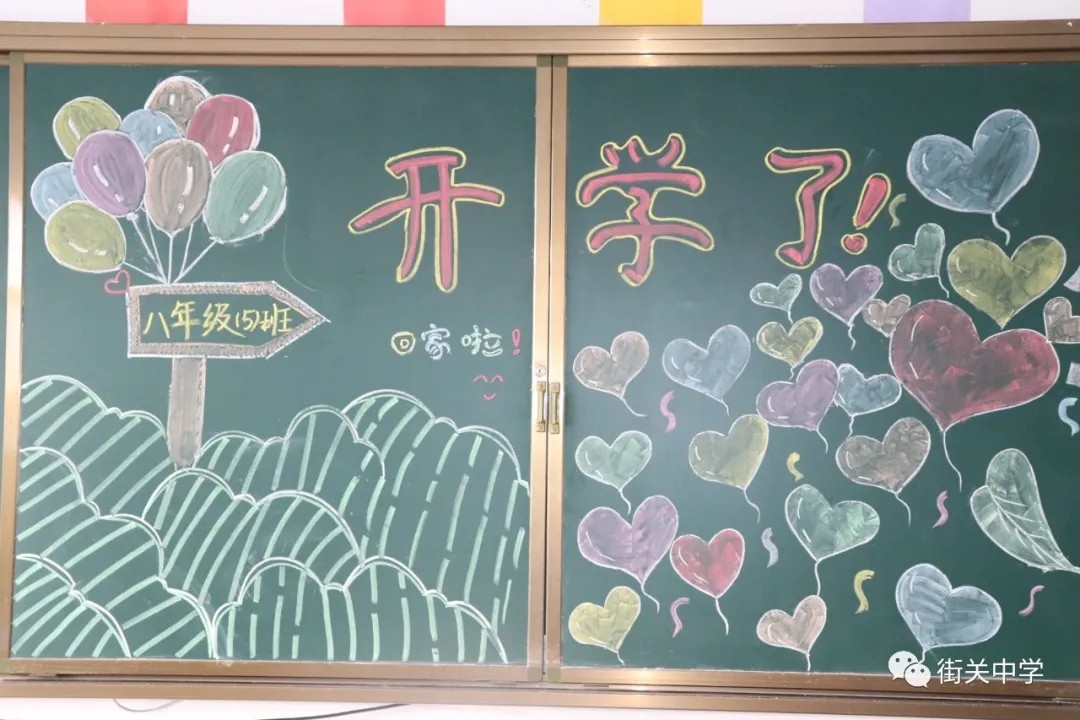 开学了!
八年级(5)班
回家啦!
街关中学